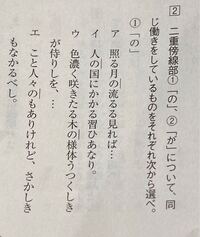 2 二重傍線部①「の」、②「が」について、同
じ働きをしているものをそれぞれ次から選べ。
①「の」
ア 照る月の流るる見れば…
イ 人の国にかかる習ひあなり。
ウ 色濃く咲きたる木の様体うつくしき
が侍りしを、…
エ こと人々のもありけれど、さかしき
もなかるべし。